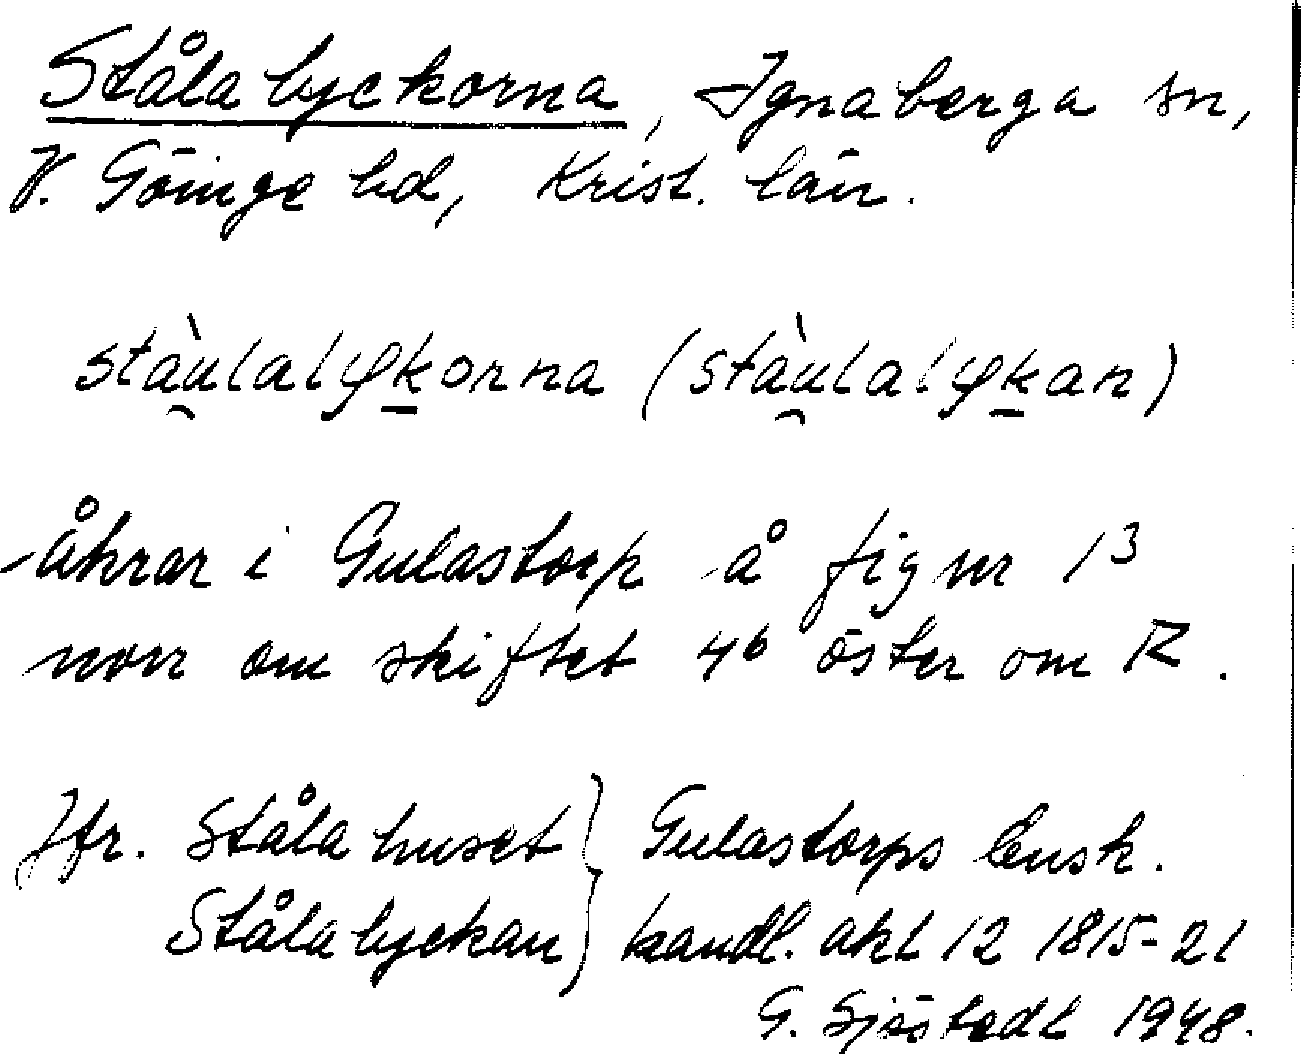 Stålalyckorna, Ignaberga sn,
V. Göinge hd, Krist. län.
stàu̯lalyḵorna (stàu̯lalyḵan)
åkrar i Gulastorp å figur 1³
norr om skiftet 4⁶ öster om R.
Jfr. Stålahuset } Gulastorps lensk.
Stålalyckan } handl. akt 12 1815-21
G. Sjöstedt 1948.